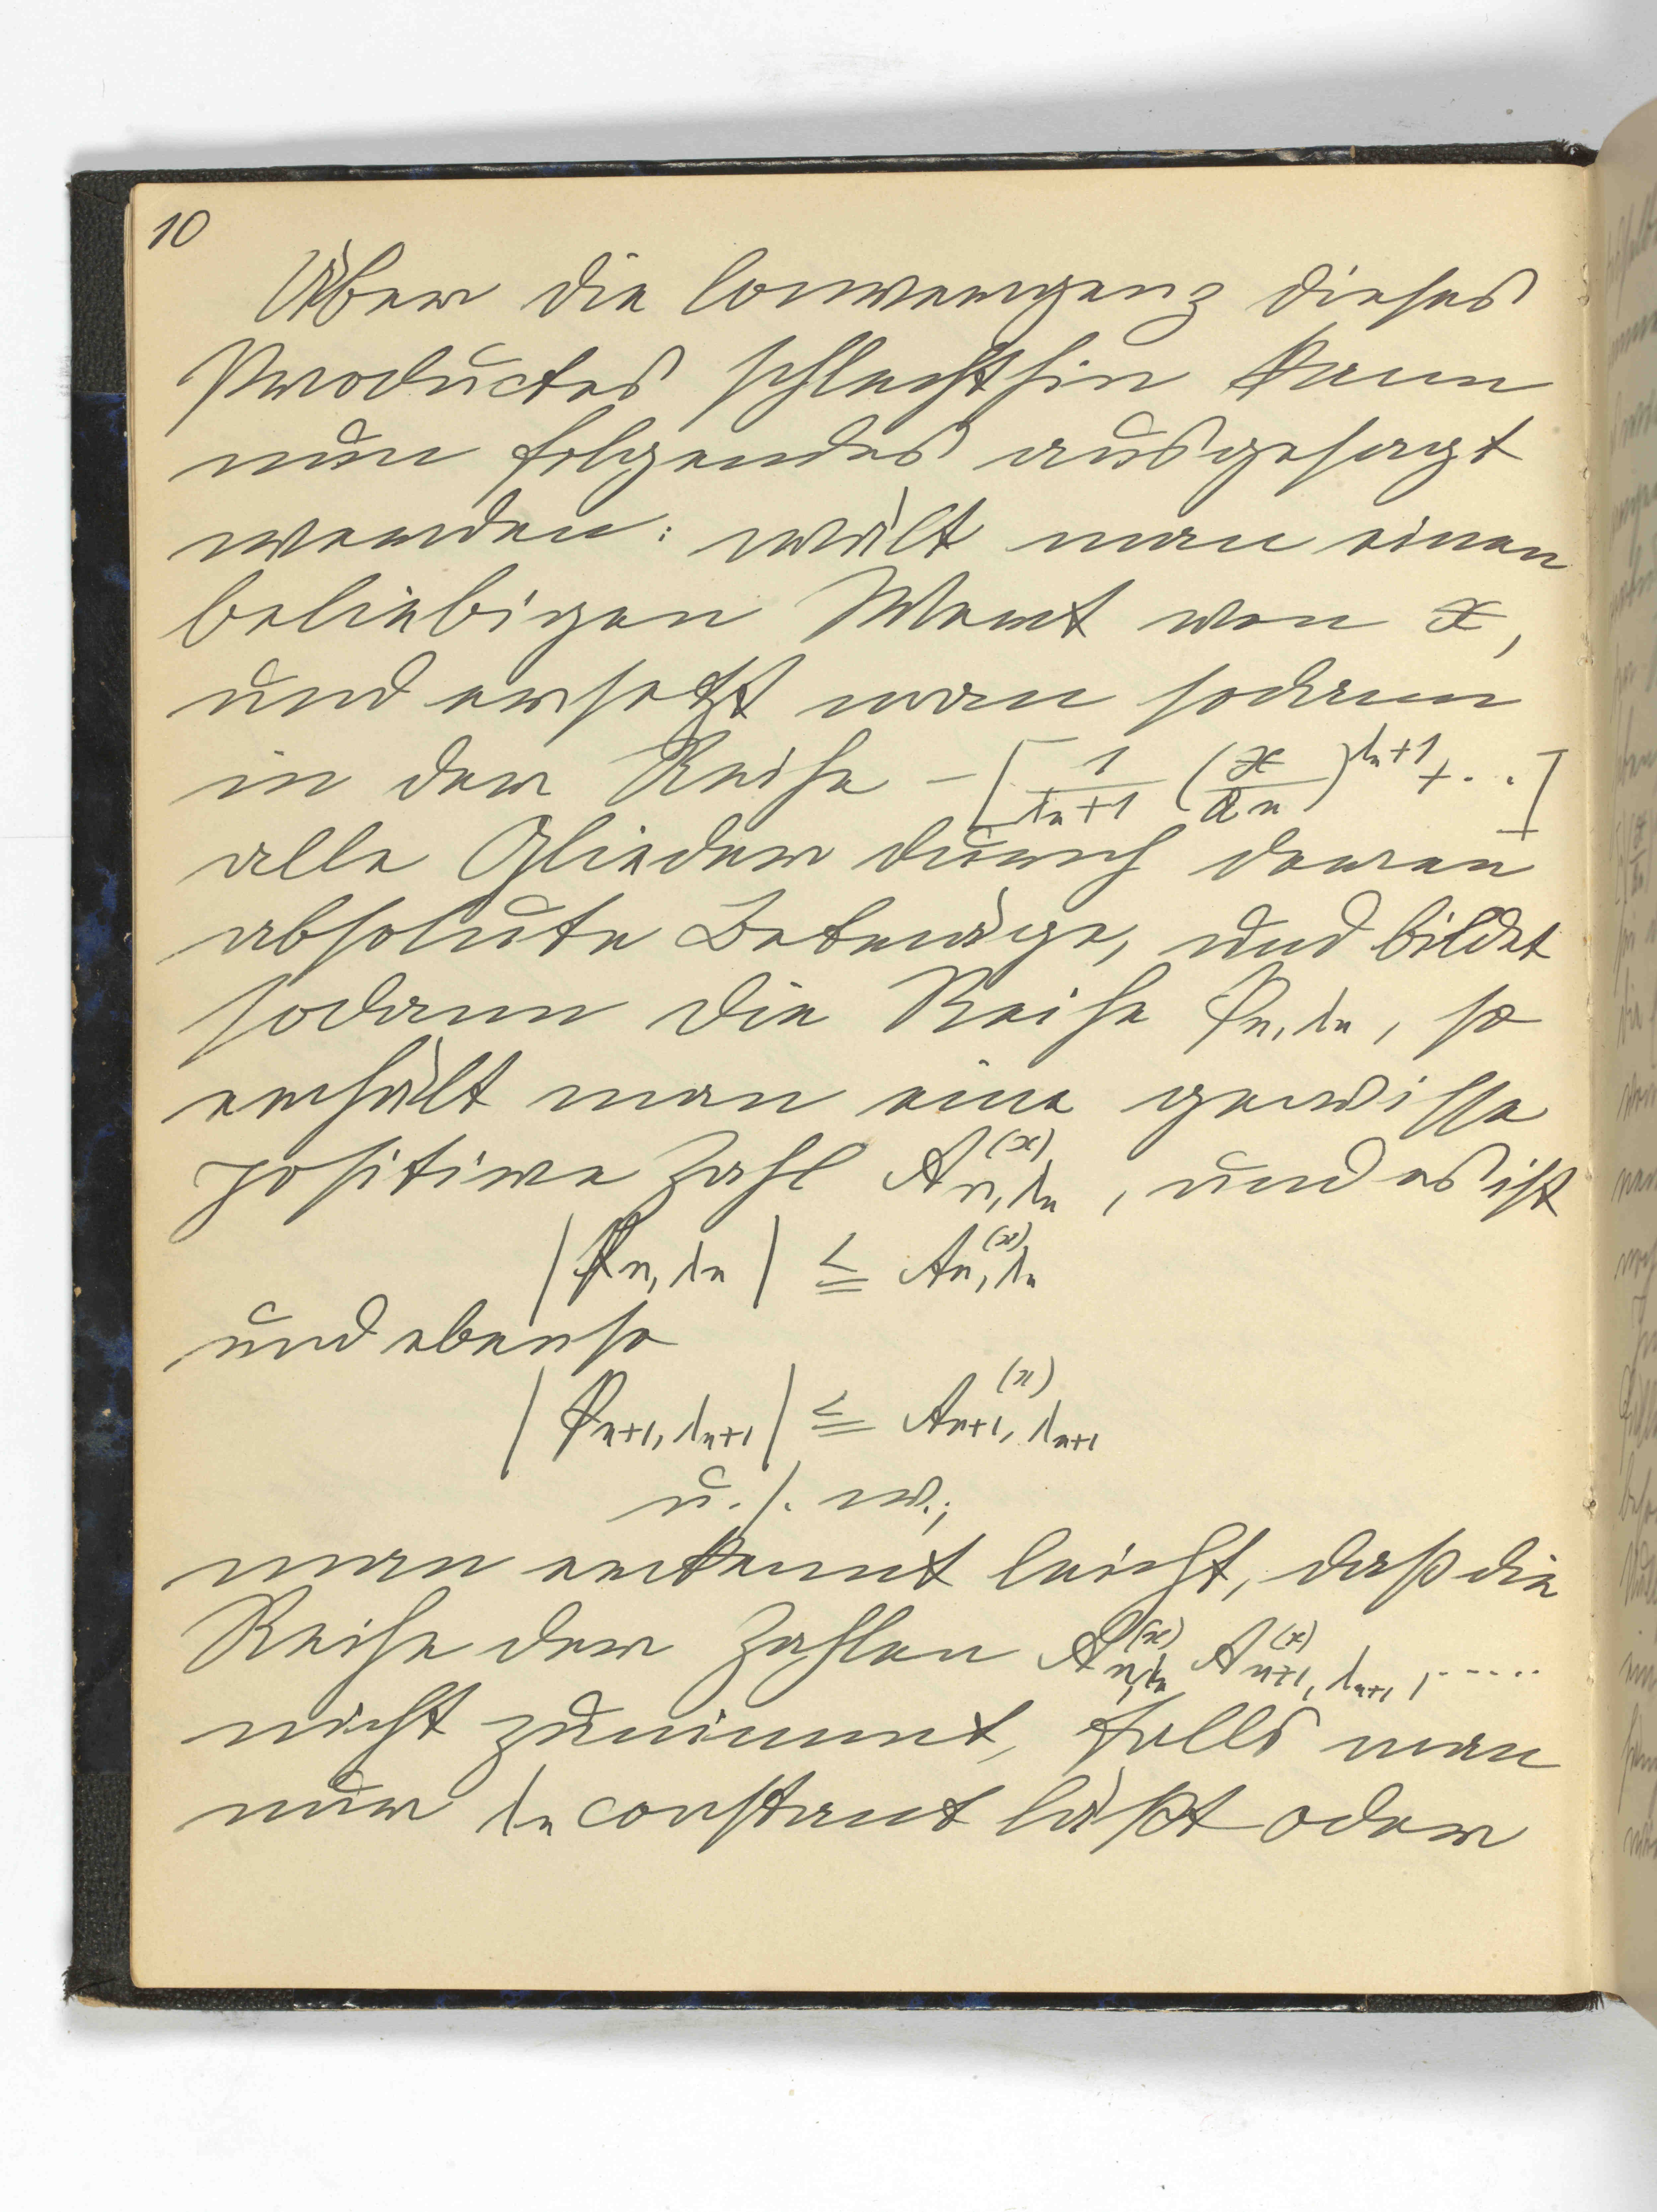 10
Über die Convergenz dieses
Productes schlechthin kann
nun folgendes ausgesagt
werden: wält man einen
beliebigen Wert von x,
und ersetzt man sodann
in der Reihe −[ 1/(λₙ+1) (x/aₙ)^(λₙ+1) + ... ]
alle Glieder durch deren
absolute Beträge, und bildet
sodann die Reihe φₙ,λₙ, so
erhält man eine gewisse
positive Zahl Aₙ,λₙ^(x), und es ist
|φₙ,λₙ| ≦ Aₙ,λₙ^(x)
und ebenso
|φₙ₊₁,λₙ₊₁| ≦ Aₙ₊₁,λₙ₊₁^(x)
u. s. w.;
man erkennt leicht, daß die
Reihe der Zahlen Aₙ,λₙ^(x) Aₙ₊₁,λₙ₊₁^(x), .....
nicht zunimmt, falls man
nur λₙ constant läßt oder